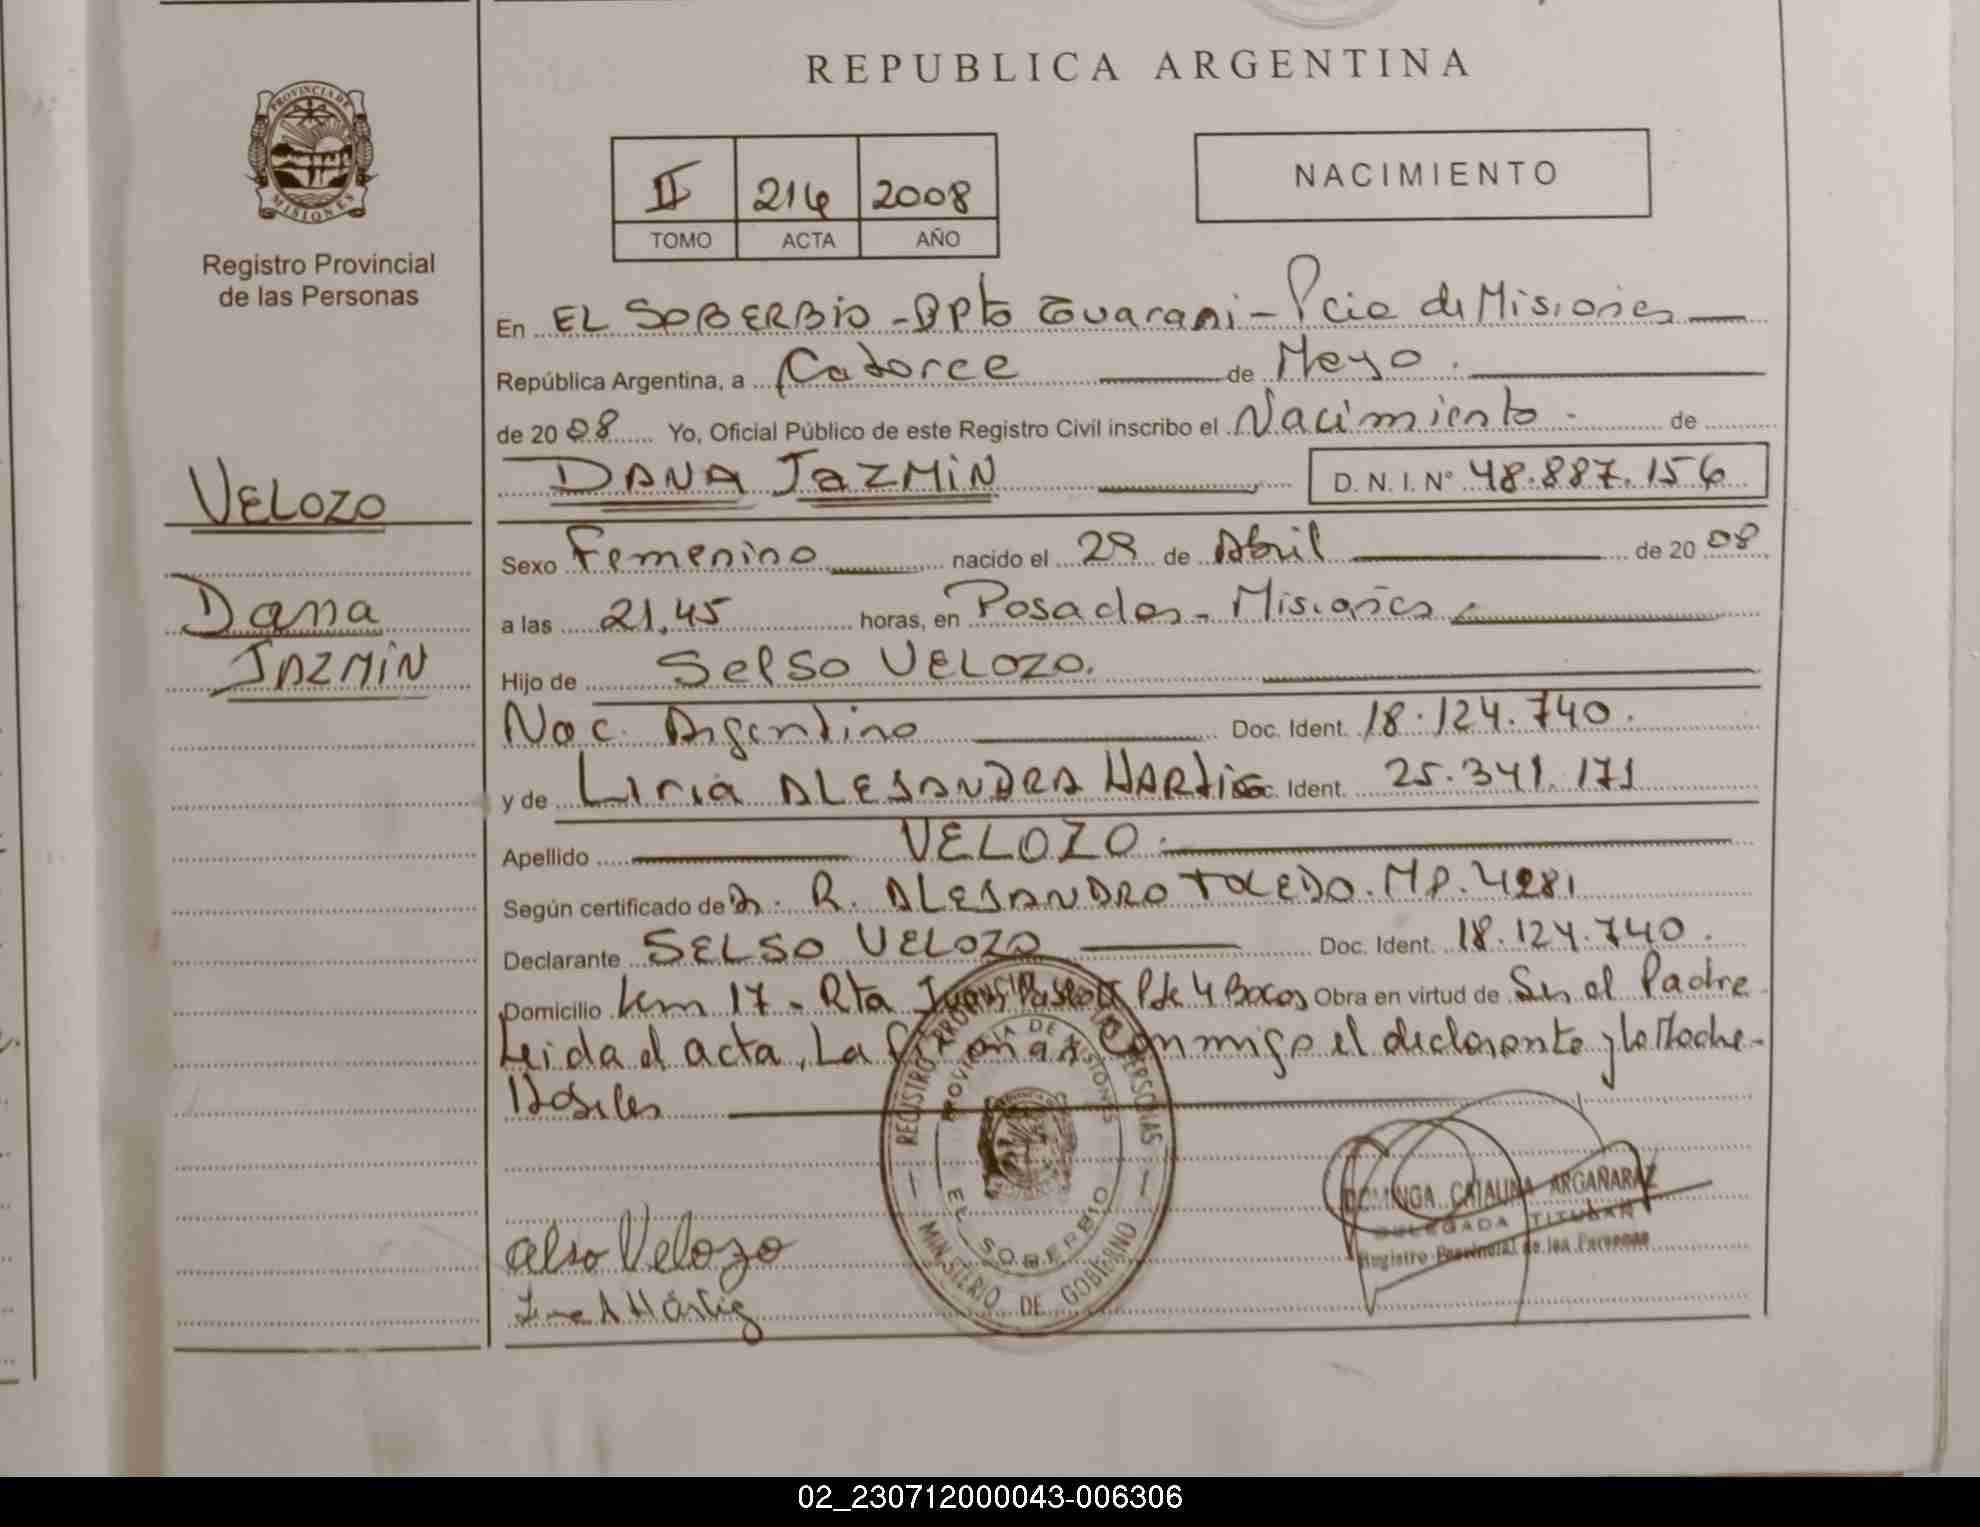 REPUBLICA ARGENTINA
PROVINCIA DE
MISIONES
Registro Provincial
de las Personas
II 214 2008
TOMO ACTA AÑO
NACIMIENTO
En EL SOBERBIO - Dpto Guarani - Pcia de Misiones
República Argentina, a Catorce de Mayo.
de 2008 Yo, Oficial Público de este Registro Civil inscribo el Nacimiento. de
DANA JAZMIN D.N.I. N° 48.887.156
VELOZO
Dana
JAZMIN
Sexo Femenino nacido el 29 de Abril de 2008
a las 21.45 horas, en Posadas - Misiones
Hijo de Selso VELOZO.
Nac. Argentino Doc. Ident. 18.124.740.
y de Liria ALEJANDRA HARTIG Doc. Ident. 25.341.171
Apellido VELOZO.
Según certificado de Dr. R. ALEJANDRO TOLEDO. MP. 4281
Declarante SELSO VELOZO Doc. Ident. 18.124.740.
Domicilio km 17 - Rta Juan Pablo II Pje 4 Bocas Obra en virtud de Ser el Padre
Leida el acta, La firman Conmigo el declarante y la Madre-
REGISTRO PROVINCIAL DE LAS PERSONAS
PROVINCIA DE MISIONES
EL SOBERBIO
MINISTERIO DE GOBIERNO
DOMINGA CATALINA ARGAÑARAZ
DELEGADA TITULAR
Registro Provincial de las Personas
Velozo
A Hartig
02_230712000043-006306